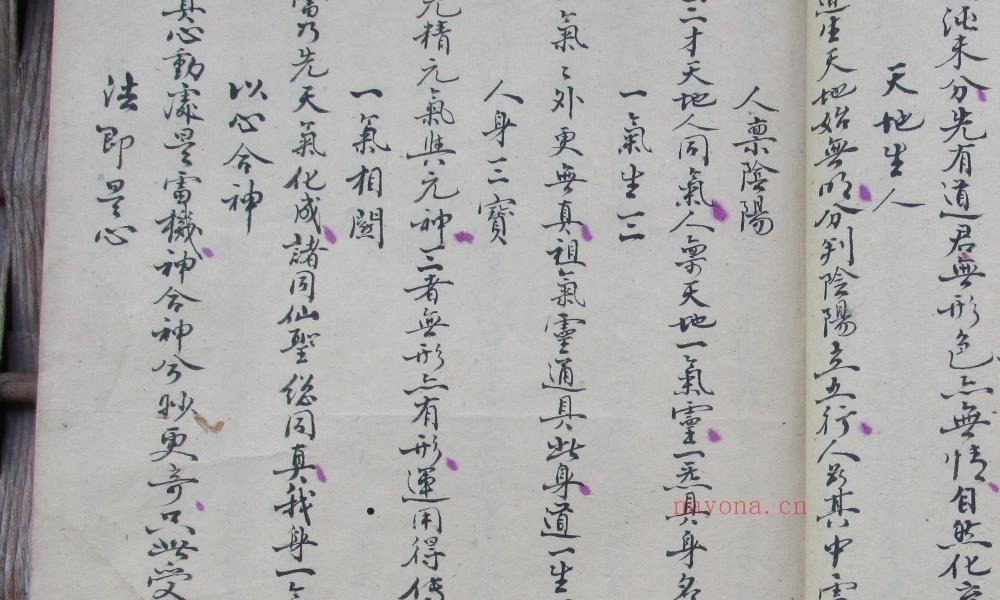 沌未分先有道君無形色亦無情自然化
天地生人
道生天地始無明分判陰陽立五行人與其中
人禀陰陽
二才天地人同氣人禀天地一氣靈一炁具身名
一氣生三
氣氣外更無真祖氣靈道具此身道一生
人身三寶
元精元氣與元神三者無形亦有形運用得傳
一氣相關
先天氣化成諸同仙聖總同真我身一
以心合神
真心動處是雷機神合神兮妙更奇只此受
法即是心
nayona.cn